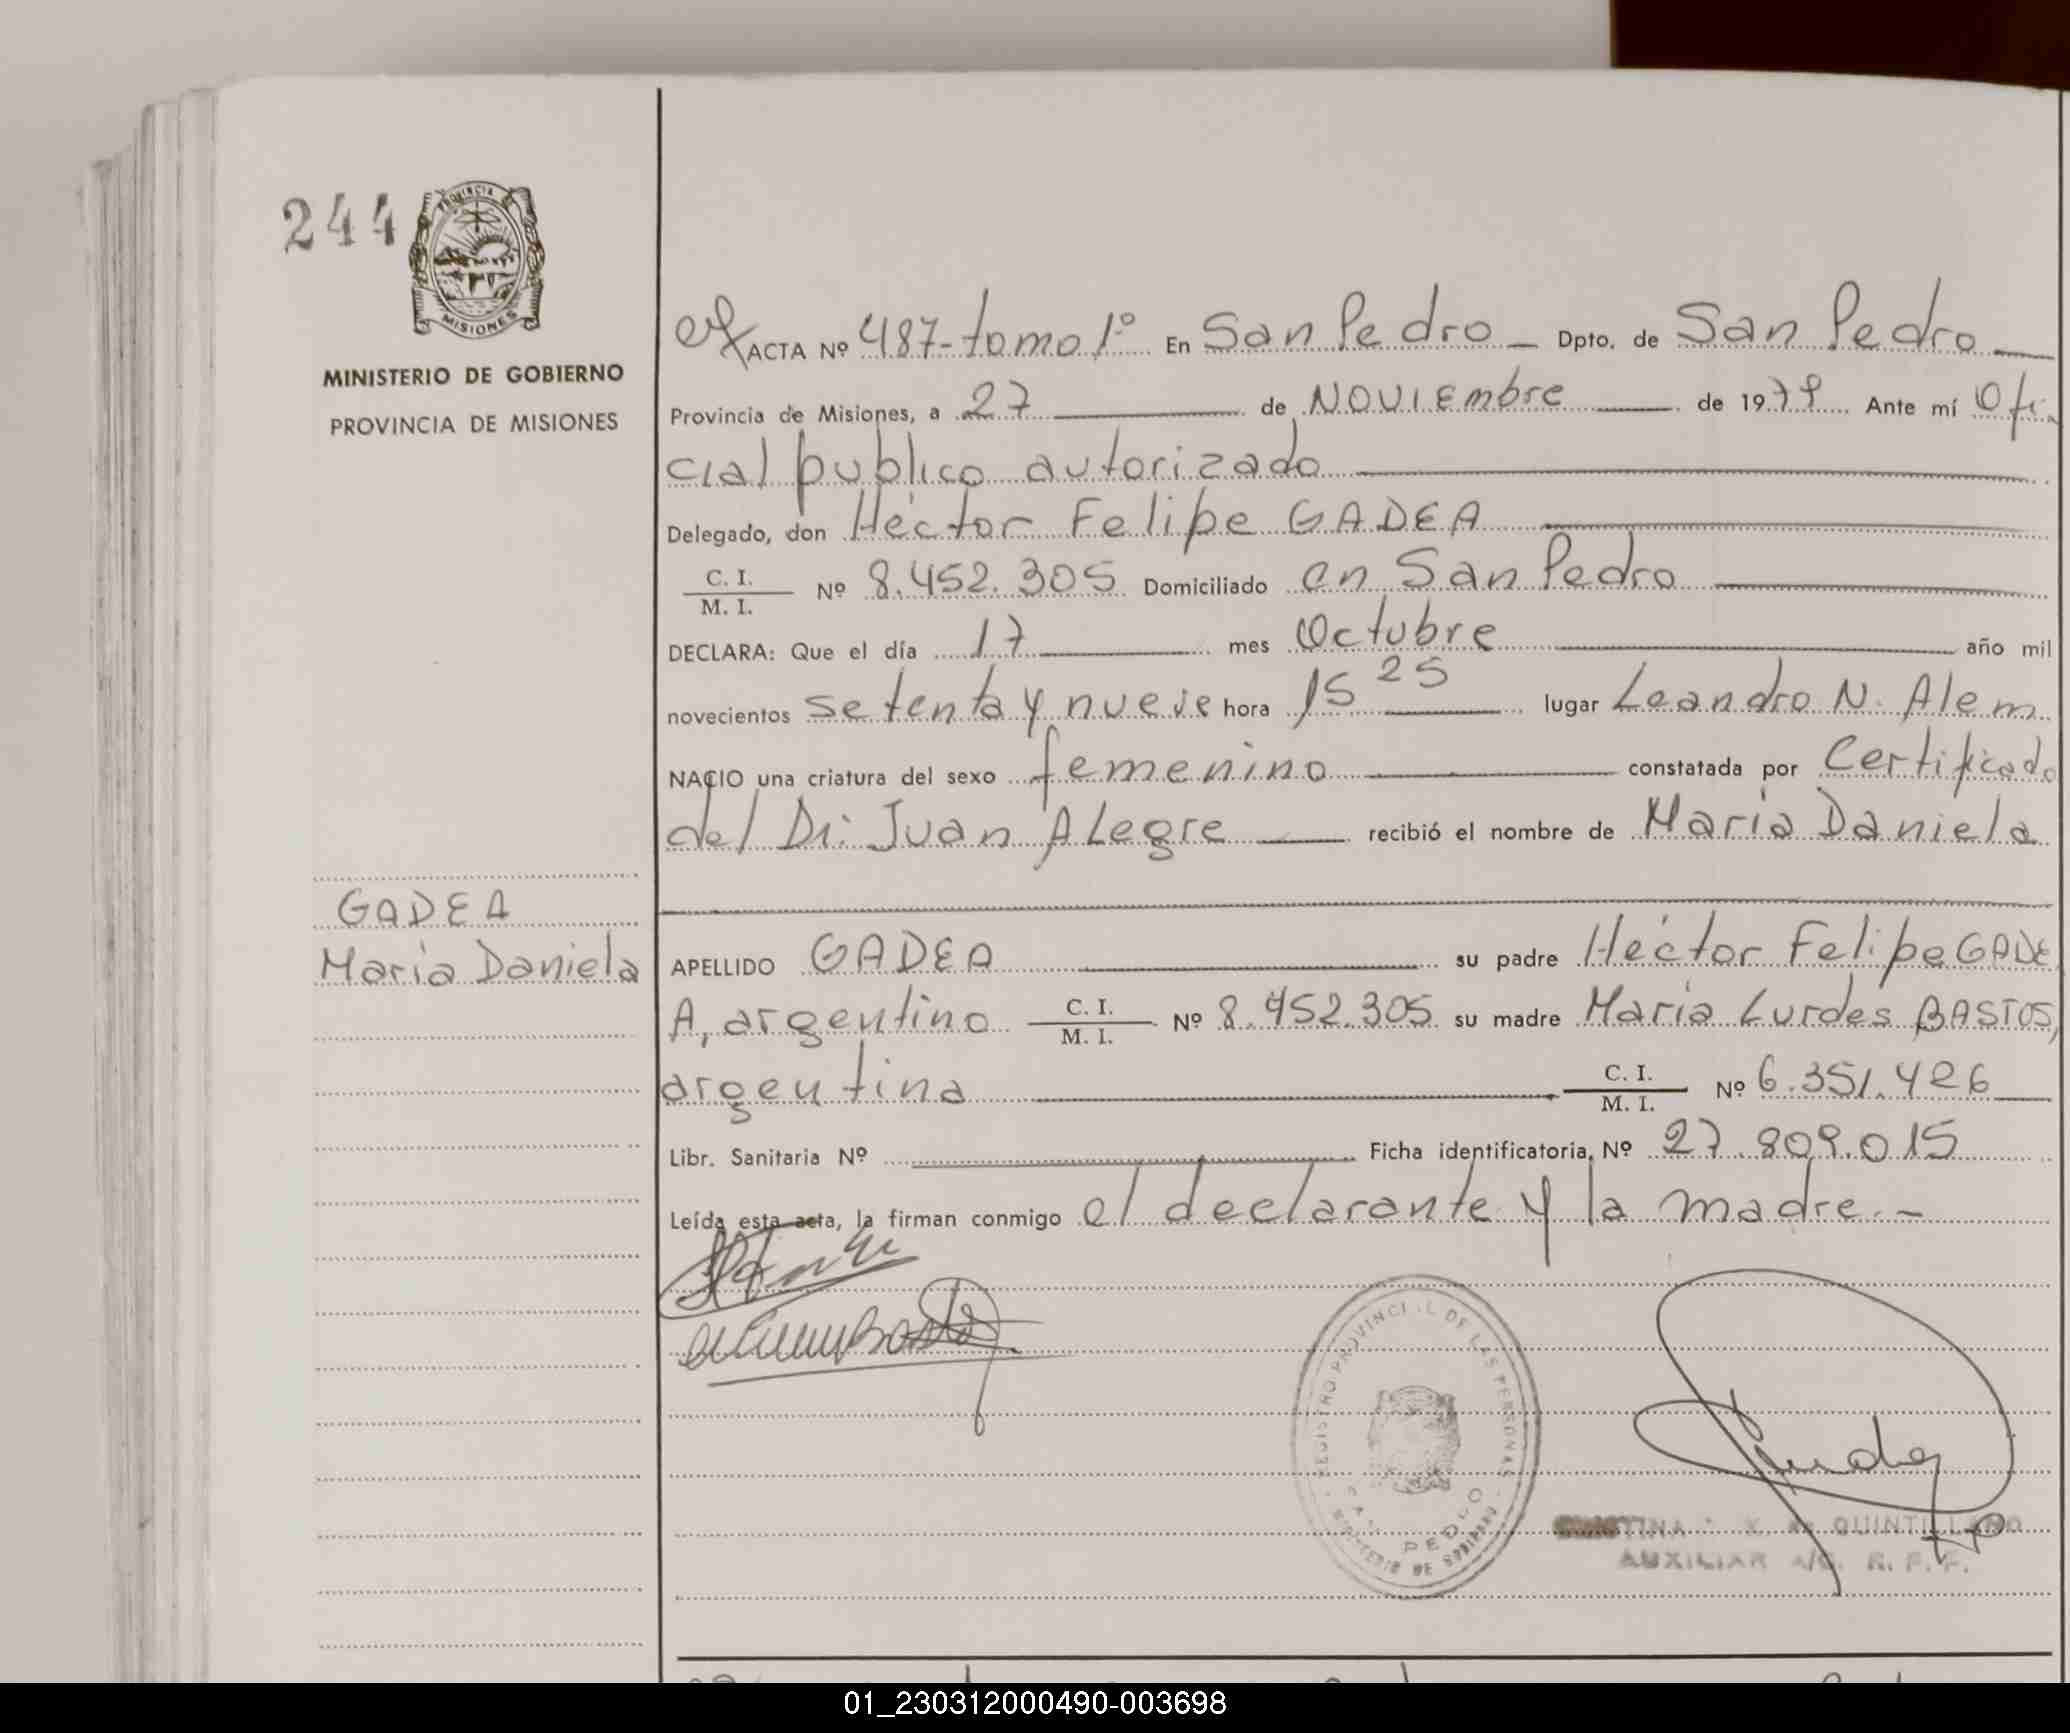 244
PROVINCIA
MISIONES
MINISTERIO DE GOBIERNO
PROVINCIA DE MISIONES
ACTA Nº 487-tomo 1º En San Pedro Dpto. de San Pedro
Provincia de Misiones, a 27 de Noviembre de 1979 Ante mí Ofi-
cial publico autorizado
Delegado, don Héctor Felipe GADEA
C. I.
M. I. Nº 8.452.305 Domiciliado en San Pedro
DECLARA: Que el día 17 mes Octubre año mil
novecientos setenta y nueve hora 15 25 lugar Leandro N. Alem
NACIO una criatura del sexo femenino constatada por Certificado
del Dr. Juan Alegre recibió el nombre de María Daniela
GADEA
María Daniela
APELLIDO GADEA su padre Héctor Felipe GADE
A, argentino C. I.
M. I. Nº 8.452.305 su madre María Lurdes BASTOS,
argentina C. I.
M. I. Nº 6.351.426
Libr. Sanitaria Nº Ficha identificatoria Nº 27.809.015
Leída esta acta, la firman conmigo el declarante y la madre.-
REGISTRO PROVINCIAL DE LAS PERSONAS
SAN PEDRO
MINISTERIO DE GOBIERNO
AUXILIAR A/C. R. P. P.
01_230312000490-003698